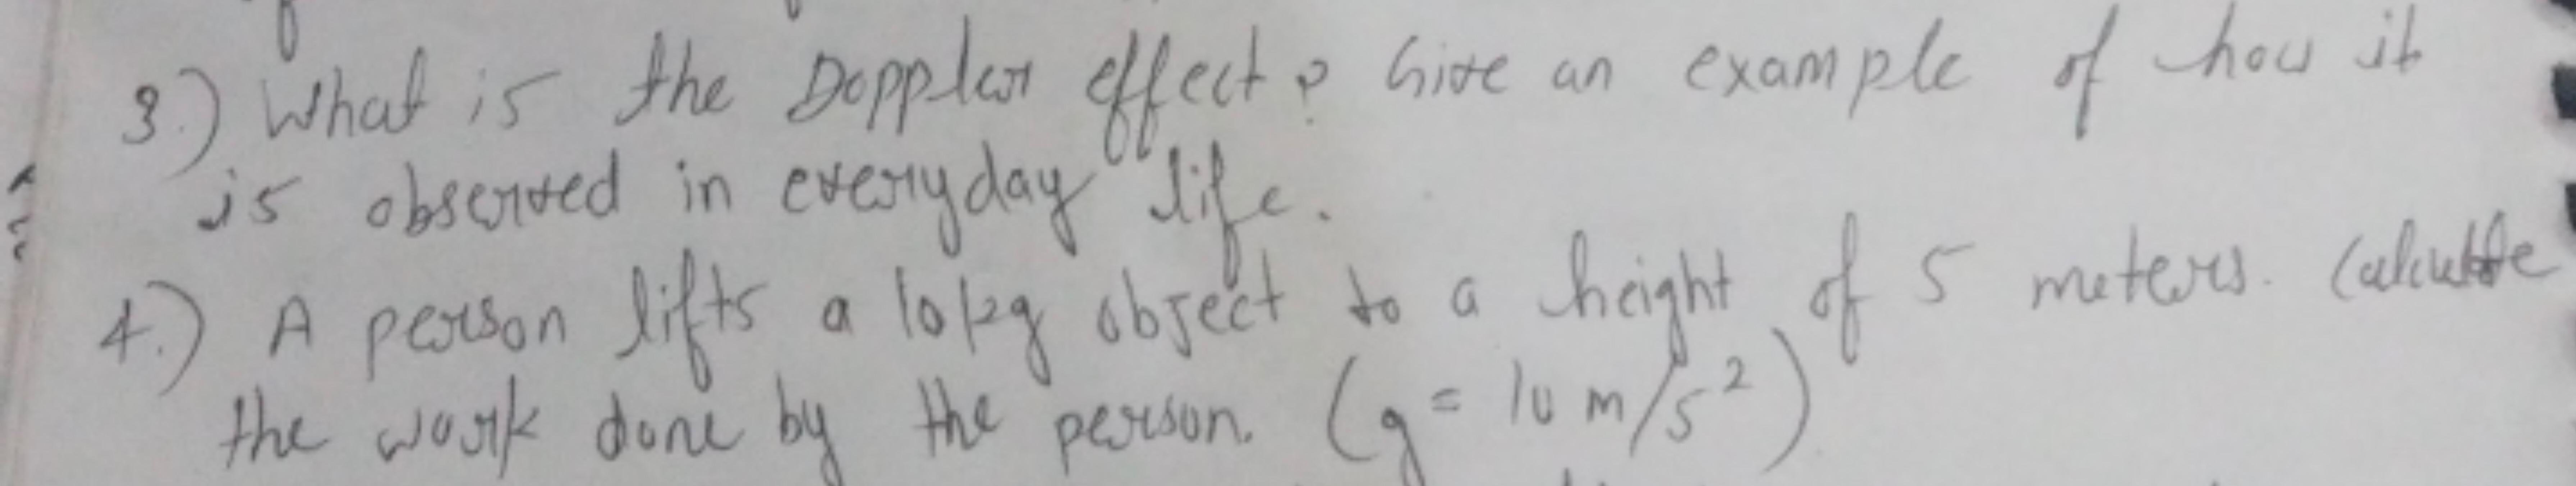 3.) What is the Doppler effect? Give an example of how it
is observed in everyday life.
4.) A person lifts a 10kg object to a height of 5 meters. Calculate
the work done by the person. (g = 10 m/s²)